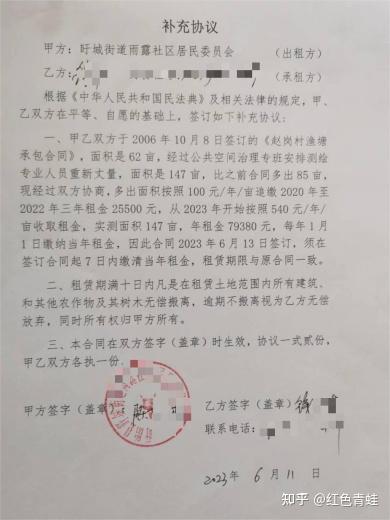 补充协议
甲方：盱城街道雨露社区居民委员会 （出租方）
乙方： （承租方）
根据《中华人民共和国民法典》及相关法律的规定，甲、
乙双方在平等、自愿的基础上，签订如下补充协议：
一、甲乙双方于 2006 年 10 月 8 日签订的《赵岗村渔塘
承包合同》，面积是 62 亩，经过公共空间治理专班安排测绘
专业人员重新丈量，面积是 147 亩，比之前合同多出 85 亩，
现经过双方协商，多出面积按照 100 元/年/亩追缴 2020 年至
2022 年三年租金 25500 元，从 2023 年开始按照 540 元/年/
亩收取租金，实测面积 147 亩，年租金 79380 元，每年 1 月
1 日缴纳当年租金，因此合同 2023 年 6 月 13 日签订，须在
签订合同起 7 日内缴清当年租金，租赁期限与原合同一致。
二、租赁期满十日内凡是在租赁土地范围内所有建筑、
和其他农作物及其树木无偿搬离，逾期不搬离视为乙方无偿
放弃，同时所有权归甲方所有。
三、本合同在双方签字（盖章）时生效，协议一式贰份，
甲乙双方各执一份。
甲方签字（盖章）：陈
乙方签字（盖章）
联系电话：
2023年 6 月 11 日
知乎 @红色青蛙